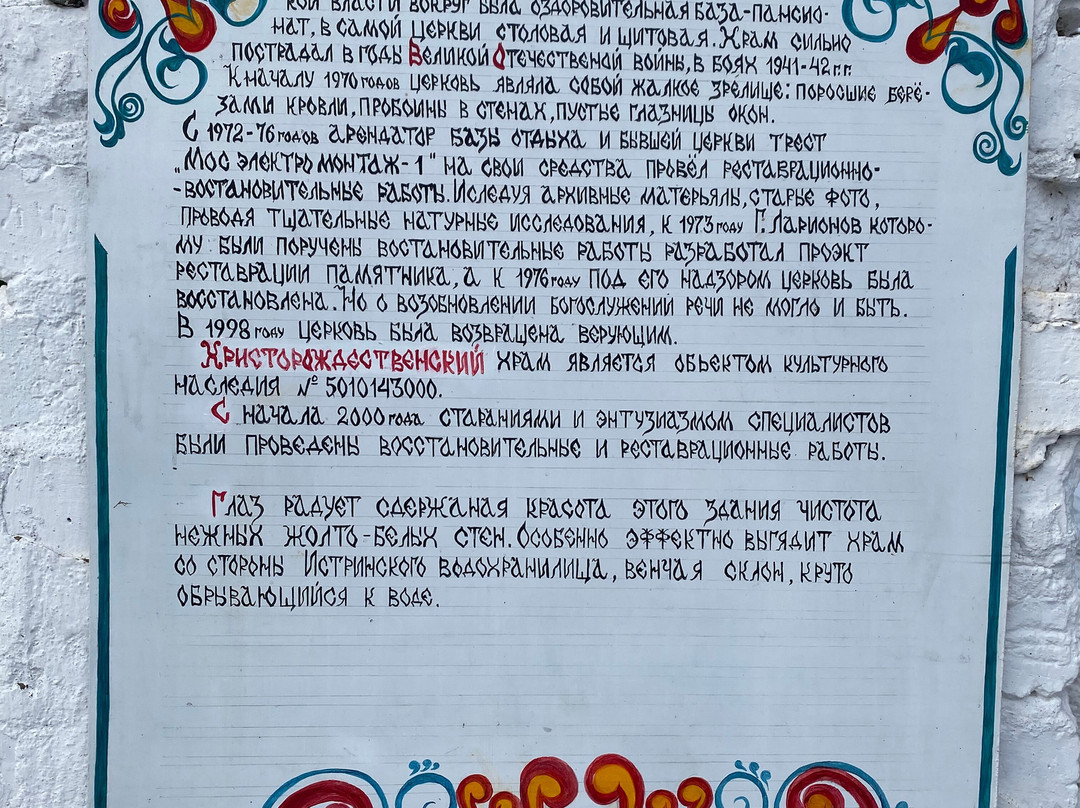 кой власти вокруг была оздоровительная база-пансио-
нат, в самой церкви столовая и щитовая. Храм сильно
пострадал в годы Великой Отечественой войны, в боях 1941-42 г.г.
К началу 1970 годов церковь являла собой жалкое зрелище: поросшие берё-
зами кровли, пробоины в стенах, пустые глазницы окон.
С 1972-76 годов арендатор базы отдыха и бывшей церкви трест
„Мосэлектромонтаж-1" на свои средства провёл реставрационно-
-востановительные работы. Иследуя архивные матерьялы, старые фото,
проводя тщательные натурные исследования, к 1973 году Г. Ларионов которо-
му были поручены востановительные работы разработал проэкт
реставрации памятника, а к 1976 году под его надзором церковь была
восстановлена. Но о возобновлении богослужений речи не могло и быть.
В 1998 году церковь была возвращена верующим.
Христорождественский храм является обьектом культурного
наследия № 5010143000.
С начала 2000 года стараниями и энтузиазмом специалистов
были проведены восстановительные и реставрационные работы.
Глаз радует сдержаная красота этого здания чистота
нежных жолто-белых стен. Особенно эффектно выгядит храм
со стороны Истринского водохранилища, венчая склон, круто
обрывающийся к воде.